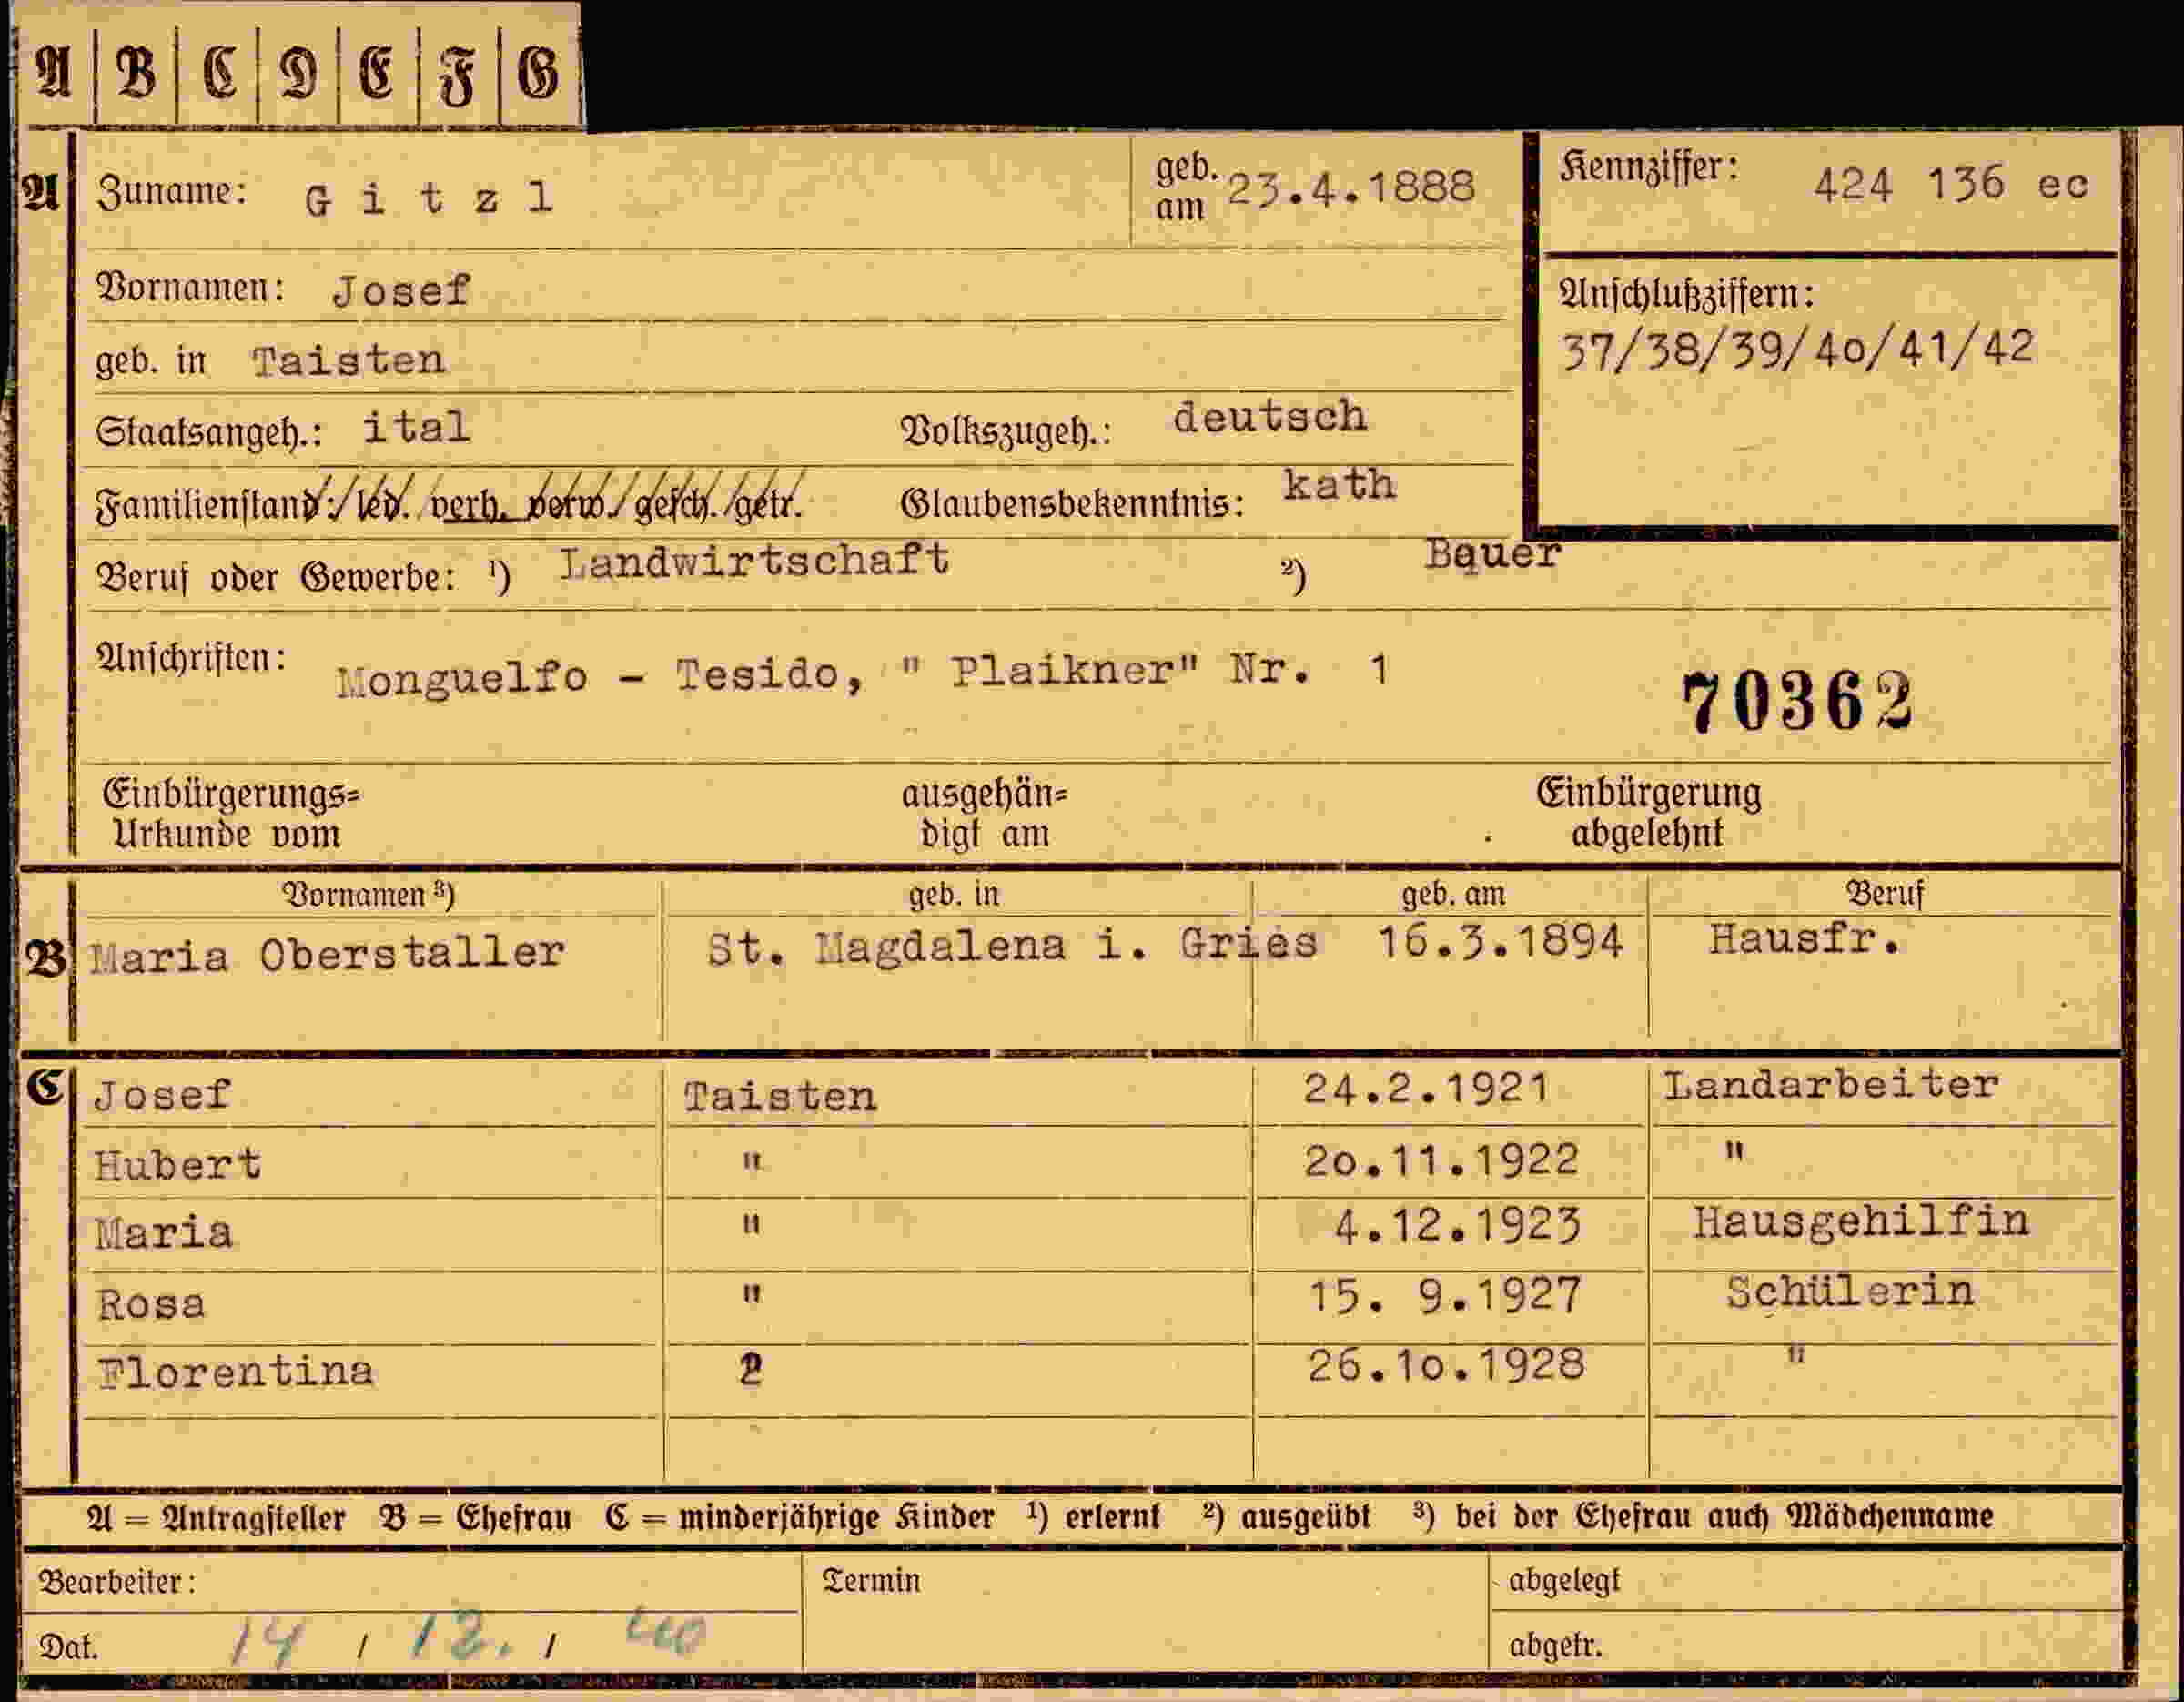 A B C D E F G
A Zuname: Gitzl geb. am 23.4.1888 Kennziffer: 424 136 ec
Vornamen: Josef Anschlußziffern:
geb. in Taisten 37/38/39/4o/41/42
Staatsangeh.: ital Volkszugeh.: deutsch
Familienstand: led. verh. verw. gesch. getr. Glaubensbekenntnis: kath
Beruf oder Gewerbe: 1) Landwirtschaft 2) Bauer
Anschriften: Monguelfo - Tesido, " Plaikner" Nr. 1
70362
Einbürgerungs= ausgehän= Einbürgerung
Urkunde vom digt am abgelehnt
Vornamen 3) geb. in geb. am Beruf
B Maria Oberstaller St. Magdalena i. Gries 16.3.1894 Hausfr.
C Josef Taisten 24.2.1921 Landarbeiter
Hubert " 2o.11.1922 "
Maria " 4.12.1923 Hausgehilfin
Rosa " 15. 9.1927 Schülerin
Florentina 2 26.1o.1928 "
A = Antragsteller B = Ehefrau C = minderjährige Kinder 1) erlernt 2) ausgeübt 3) bei der Ehefrau auch Mädchenname
Bearbeiter: Termin abgelegt
Dat. 14 / 12. / 40 abgetr.